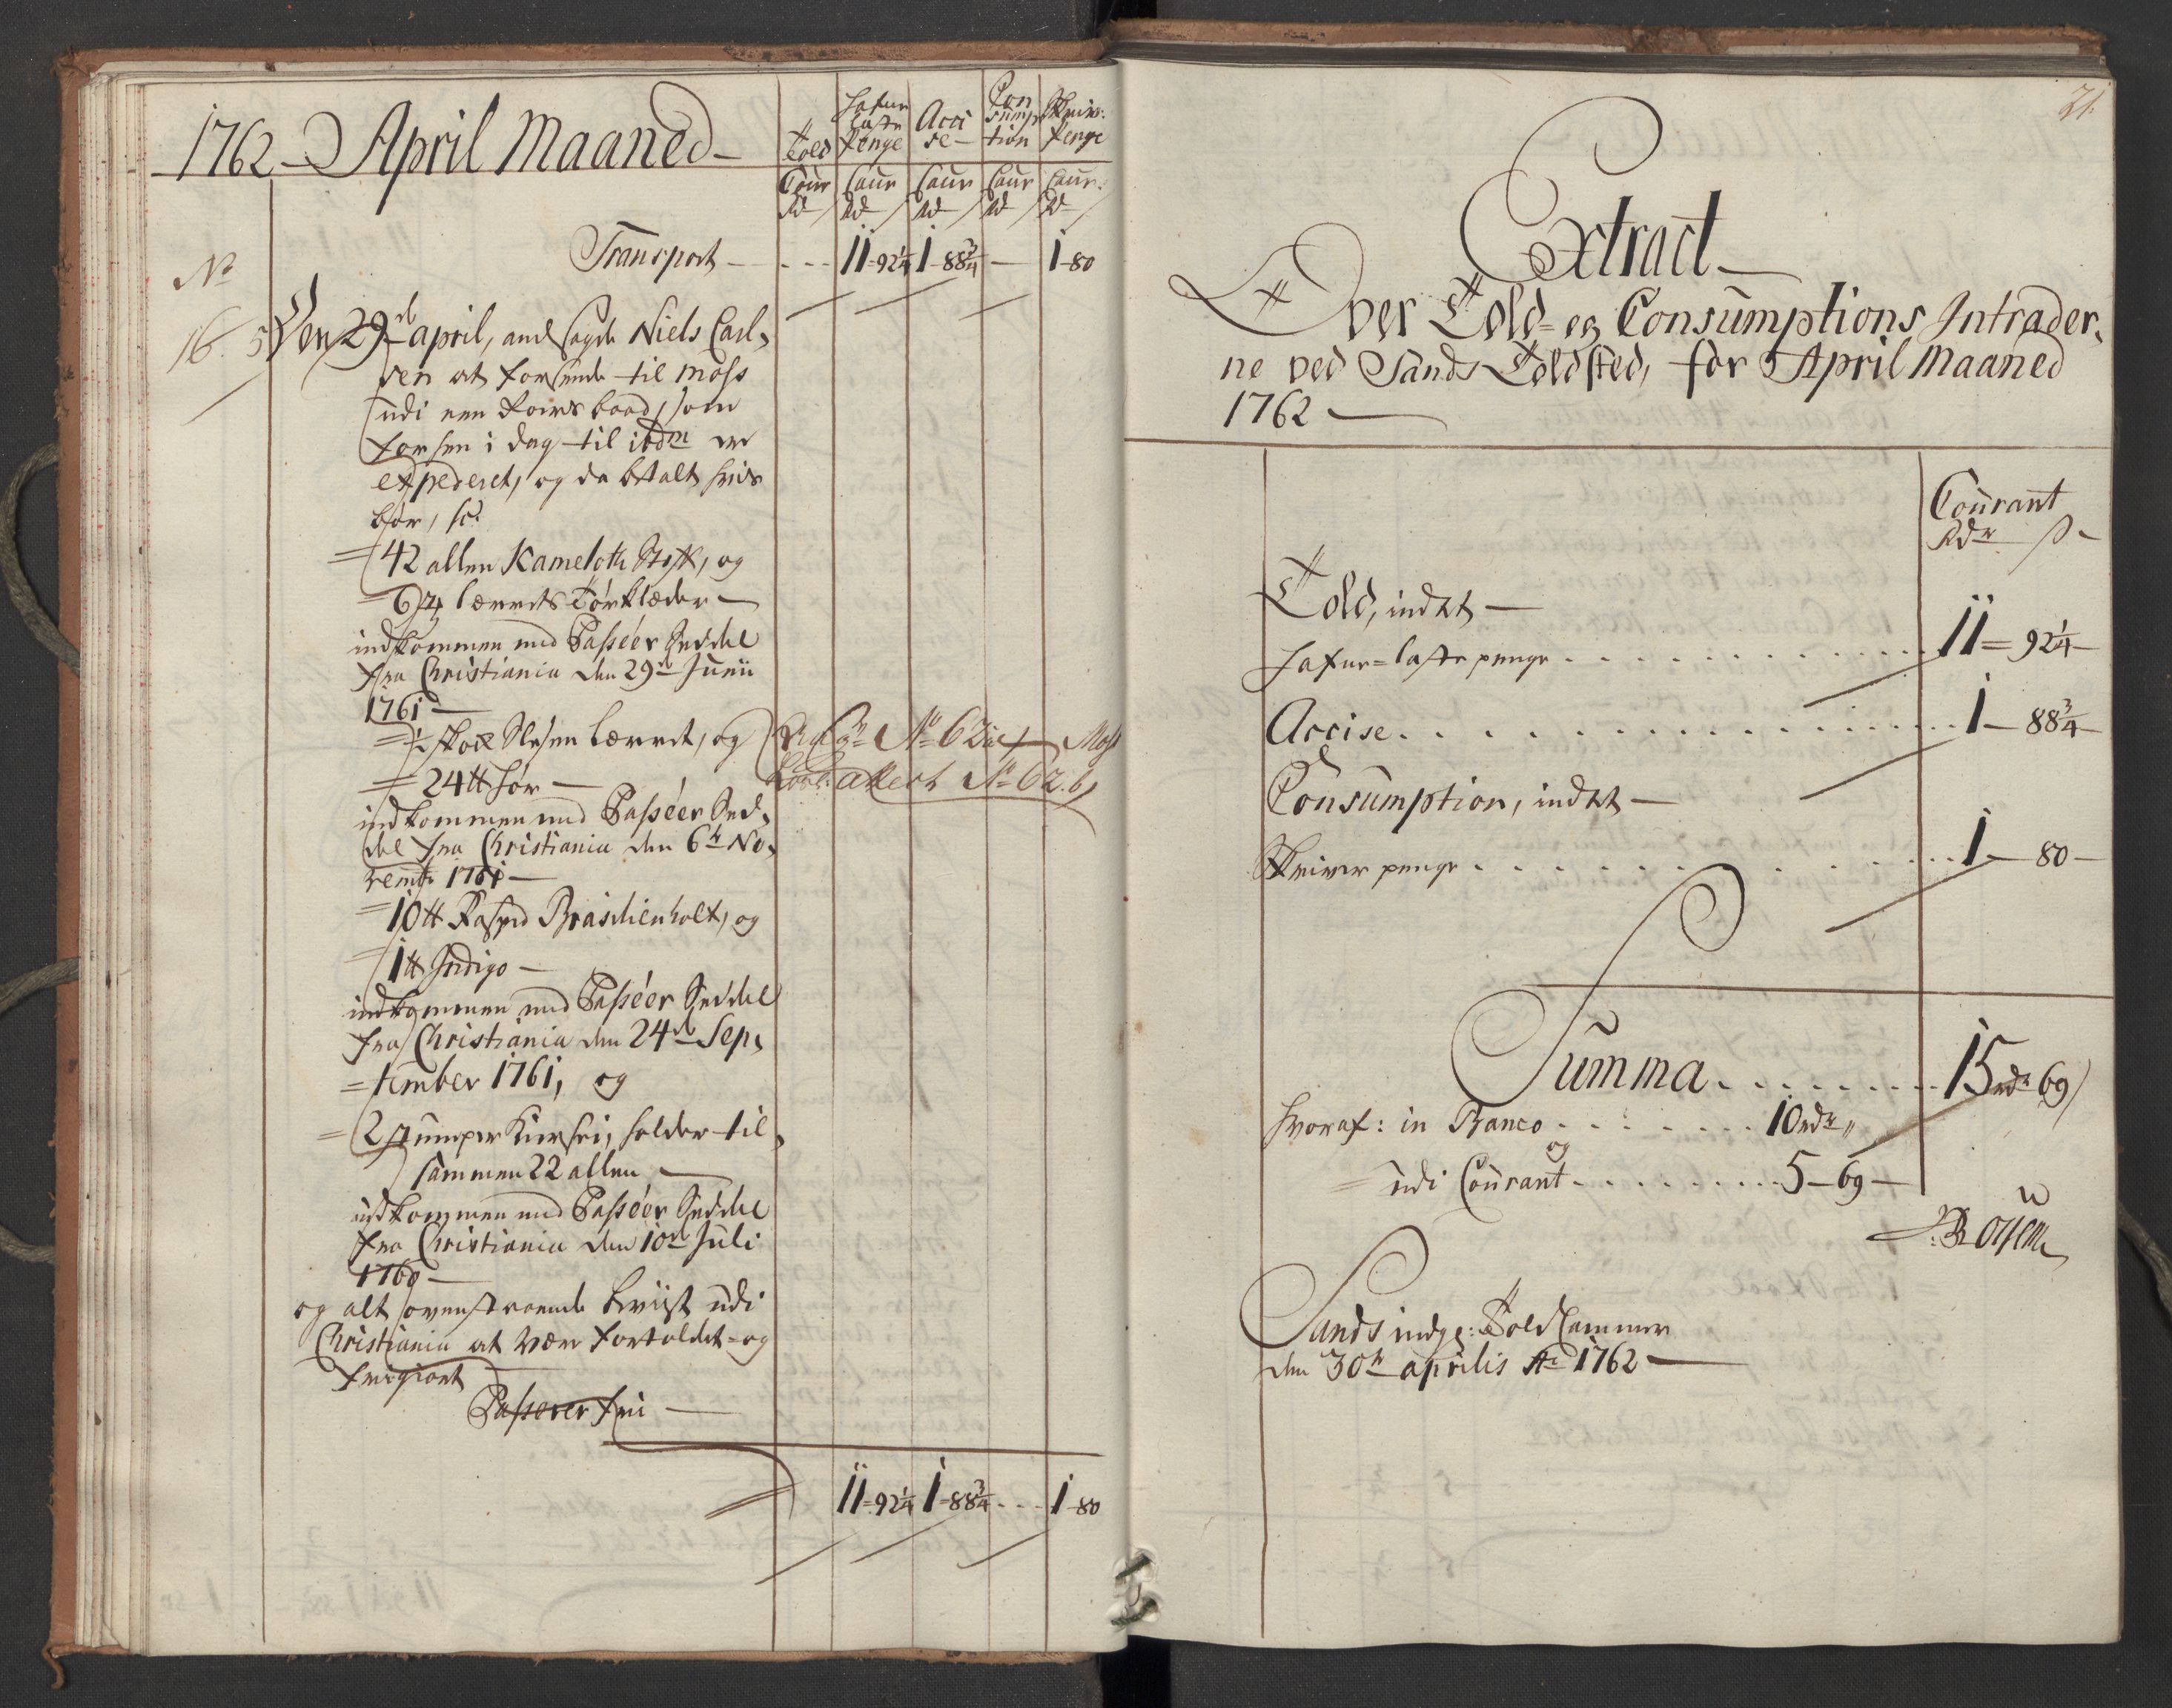 1762 - April Maaned -
Told
Hafne
Laste
Penge
Acci
se -
Con
sump
tion
Skriv:
Penge
Cour Cour Cour Cour Cour:
Rd Rd Rd Rd Rd
No
Transport - - - - 11=92 1/4 1-88 3/4 — 1-80
16. Den 29de april, and sagde Niels Carl,
sen at forsende til Moss
udi een Förings baad, som
forhen i dag til ibdm er
expederet, og da betalt hvis
bör,
= 42 allen Kameloth Stoff, og
= 6 lærrets Törklæder -
indkommen med Passéer Seddel
fra Christiania den 29de Junii
1761 -
= 1/2 skock Slesen Lærret, og
= 24 ℔ Hör -
indkommen med Passéer Sed,
del fra Christiania den 6te No,
vembr 1761 -
= 10 ℔ Raspd Brasilienholt, og
1 ℔ Indigo -
indkommen med Passéer Seddel
fra Christiania den 24de Sep,
= tember 1761, og
= 2 Kiersei, holder til,
sammen 22 allen -
indkommen med Passéer Seddel
fra Christiania den 10de Juli
1760 -
og alt ovenstaaende beviist udi
Christiania at være fortoldet og
frigiort
Passerer frii -
No 62 Moss
attest No 62.
11=92 1/4 1-88 3/4 - - - 1-80
21.
Extract -
Over Told- og Consumptions Intrader,
ne ved Sands Toldsted, for April Maaned
1762 -
Courant
Rdr ß
Told, indtet -
Hafne= laste penge . . . . . . 11= 92 1/4 -
Accise . . . . . . 1 - 88 3/4 -
Consumption, indtet -
Skriver penge . . . . . . 1 - 80 -
Summa . . . . . . 15 rdr 69
Hvoraf: in Banco . . . . . . 10 rdr "
og
udi Courant . . . . . . 5 - 69 -
Sands Told Cammer
den 30te aprilis Ao 1762 -